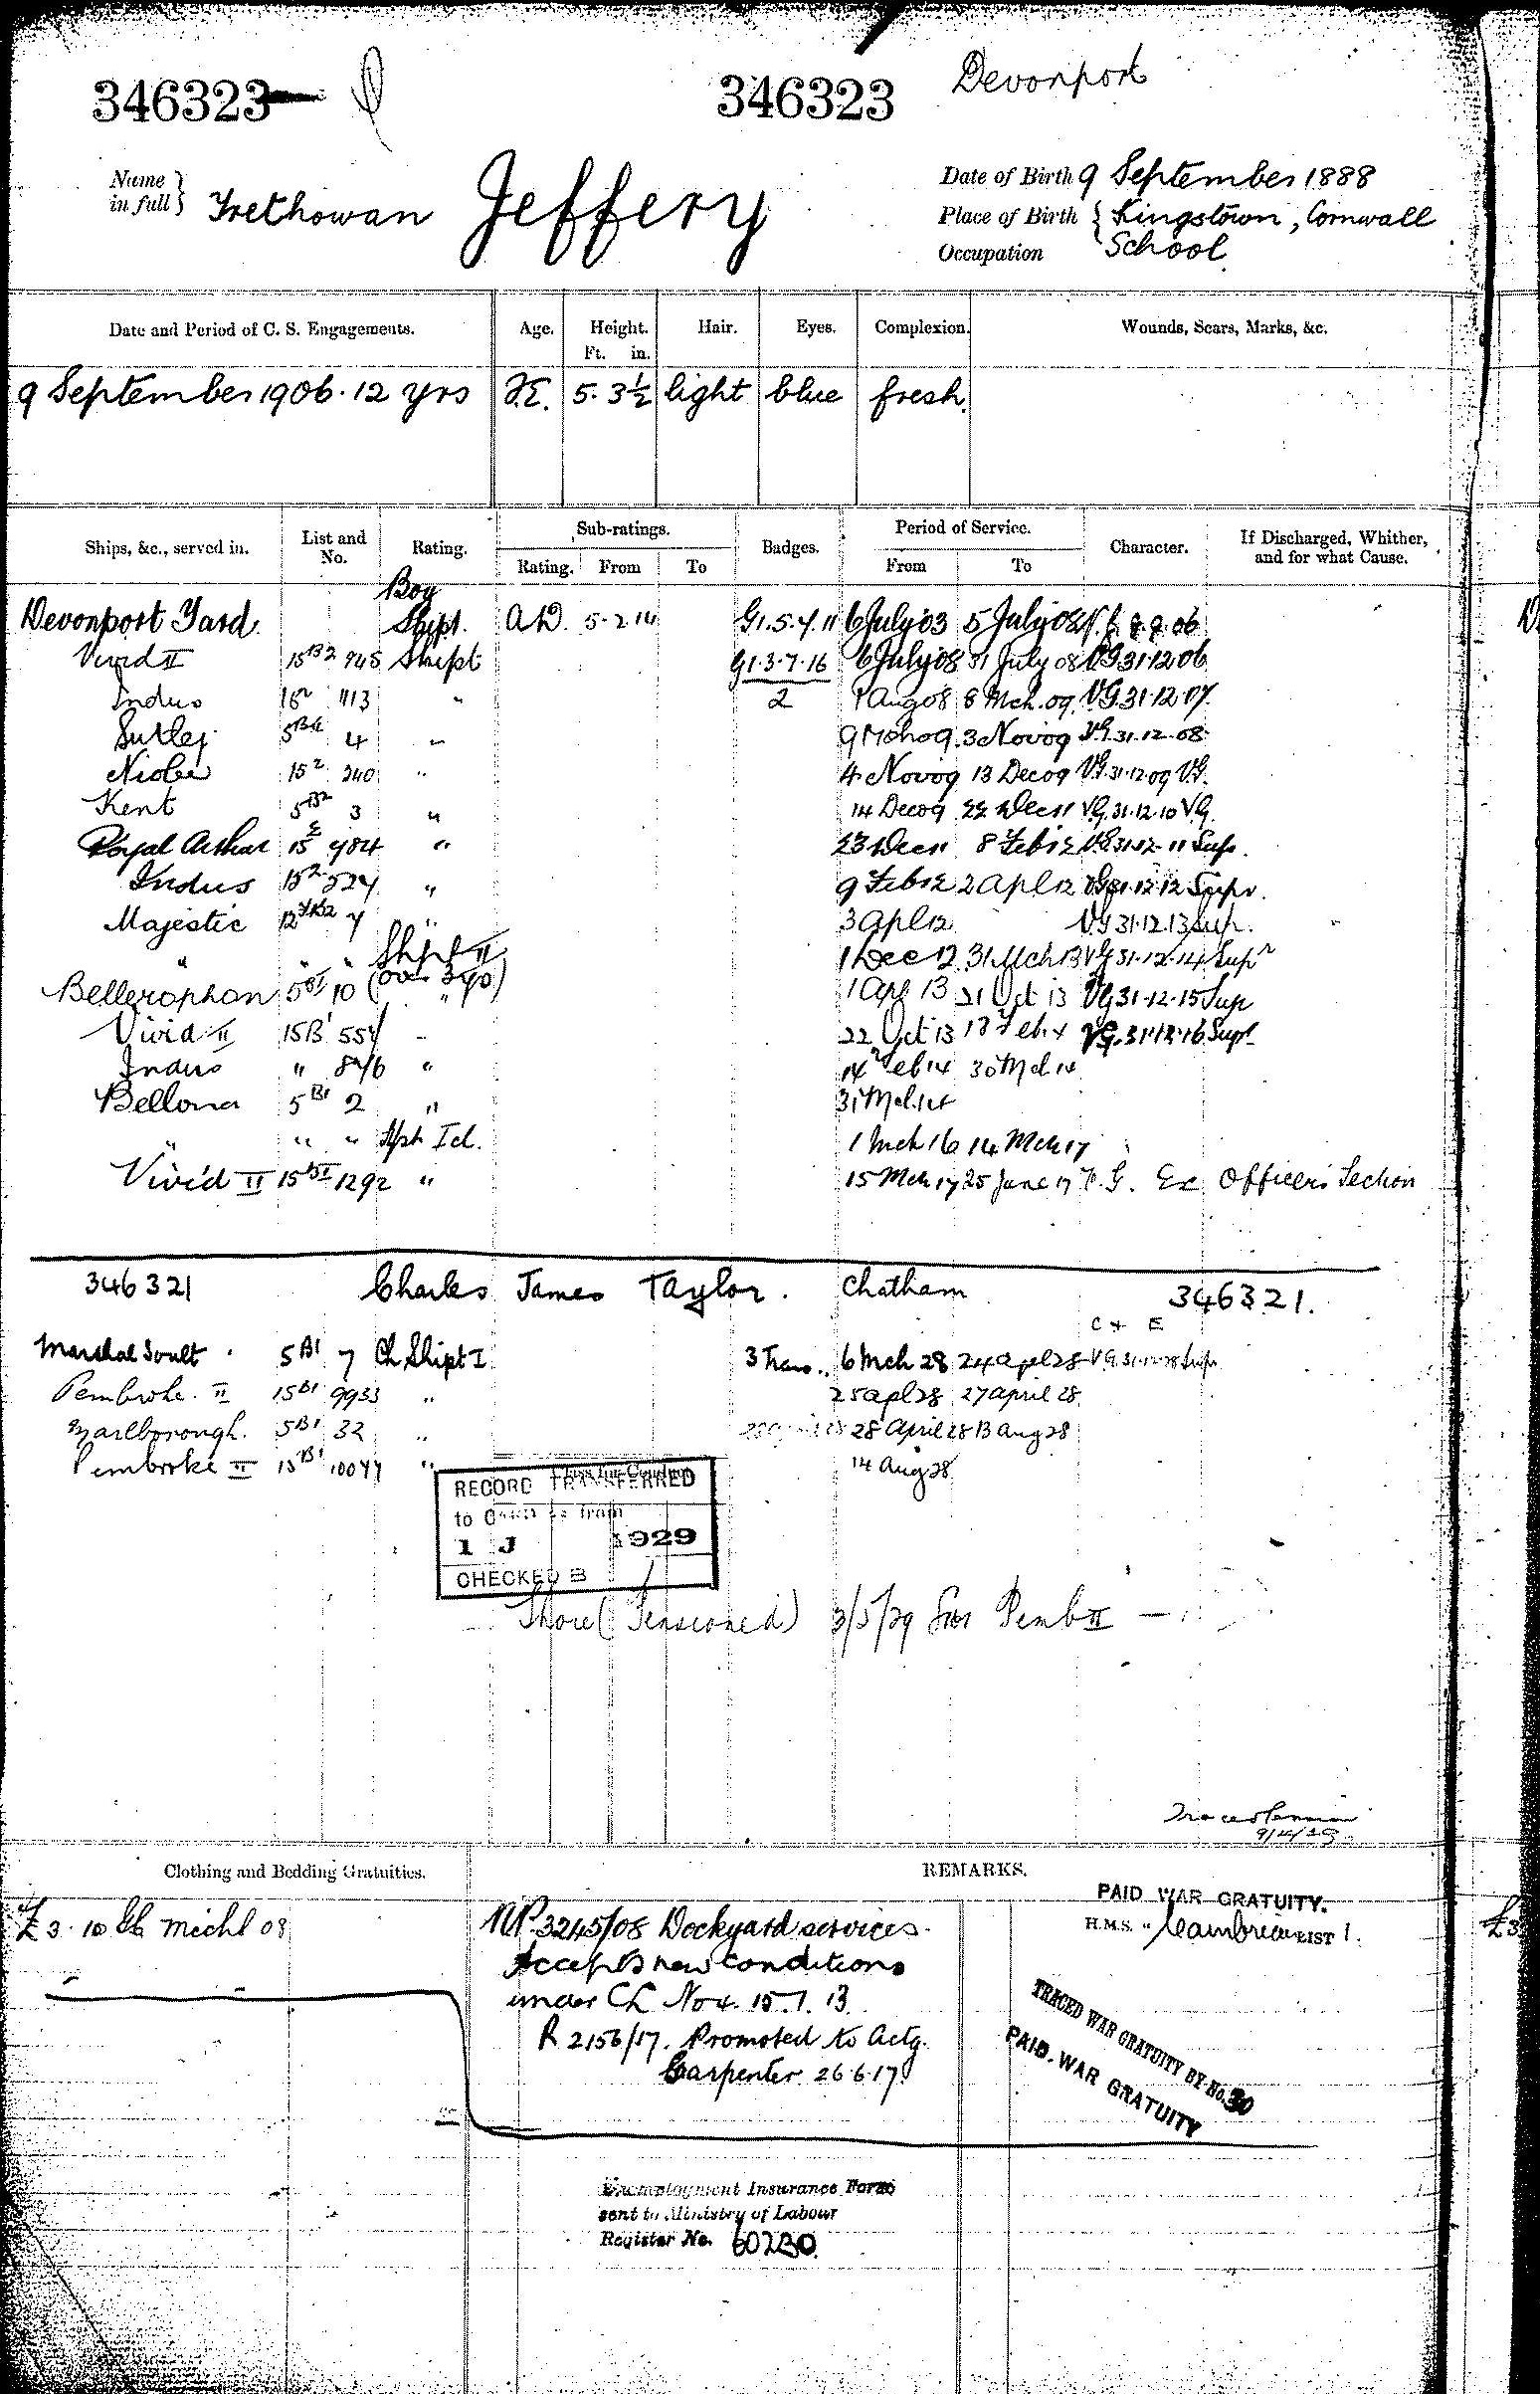 346323
346323 Devonport
Name in full } Trethowan Jeffery
Date of Birth 9 September 1888
Place of Birth { Kingstown, Cornwall
Occupation School
Date and Period of C. S. Engagements. Age. Height. Ft. in. Hair. Eyes. Complexion. Wounds, Scars, Marks, &c.
9 September 1906. 12 yrs 5. 3½ light blue fresh.
Ships, &c., served in. List and No. Rating. Sub-ratings. Rating. From To Badges. Period of Service. From To Character. If Discharged, Whither, and for what Cause.
Boy
Devonport Yard Shipt. 5.2.14 6 July 03 5 July 08
Vivid II 15B2 945 Shipt G1.3.7.16 6 July 08 31 July 08 VG 31.12.06
Indus 15 2 1113 " 2 1 Aug 08 8 Mch. 09 VG 31.12.07
Sutlej 4 " 9 Mch 09 3 Nov 09 VG 31.12.08
Niobe 15 2 240 " 4 Nov 09 13 Dec 09 VG 31.12.09 VG.
Kent 5B2 3 " 14 Dec 09 22 Dec 11 VG. 31.12.10 VG.
Royal Arthur 15 2 984 " 23 Dec 11 8 Feb 12 VG 31.12.11 Supr.
Indus 15 2 " 9 Feb 12 2 Apl 12 VG 31.12.12 Supr.
Majestic 7 " 3 Apl 12 VG 31.12.13 Sup.
" " " Shpt II 1 Dec 12 31 Mch 13 VG 31.12.14 Supr
(over 3 yrs)
Bellerophon 10 " 1 Apl 13 21 Oct 13 VG 31.12.15 Sup
Vivid II 15B1 557 " 22 Oct 13 13 Feb 14 VG. 31.12.16 Supr
Indus " 876 " 14 Feb 14 30 Mch 14
Bellona 5B1 2 " 31 Mch 14
" " " Shpt I cl. 1 Mch 16 14 Mch 17
Vivid II 15BI 1292 " 15 Mch 17 25 June 17 V.G. Ex Officers Section
346321 Charles James Taylor. Chatham 346321.
Marshal Soult 5B1 7 Ch Shipt I 6 Mch 28 24 Apl 28
Pembroke II 15B1 9933 " 25 Apl 28 27 April 28
Marlborough. 5B1 32 " 28 April 28 13 Aug 28
Pembroke II 15B1 10077 " 14 Aug 28
RECORD TRANSFERRED
1 J 1929
CHECKED B
Shore (Pensioned) 3/5/29 from Pemb II
Clothing and Bedding Gratuities. REMARKS.
£3.10 08
NP. 3245/08 Dockyard services.
Accepts new conditions
under CL No 4. 15.1.13
R 2156/17. Promoted to Actg.
Carpenter 26.6.17
PAID WAR GRATUITY.
H.M.S. "Cambrian LIST 1.
TRACED WAR GRATUITY BY No. 30
PAID WAR GRATUITY
Unemployment Insurance Form
sent to Ministry of Labour
Register No. 60230